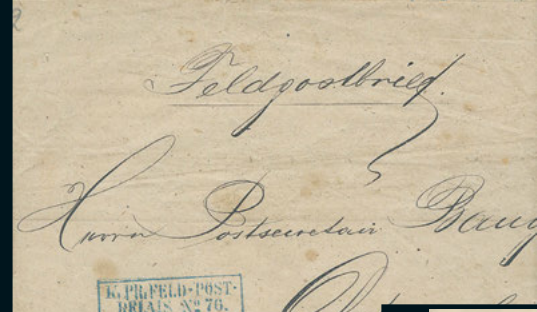 Feldpostbrief.
Herrn Postsecretair
K. PR. FELD-POST-
RELAIS Nº 76.